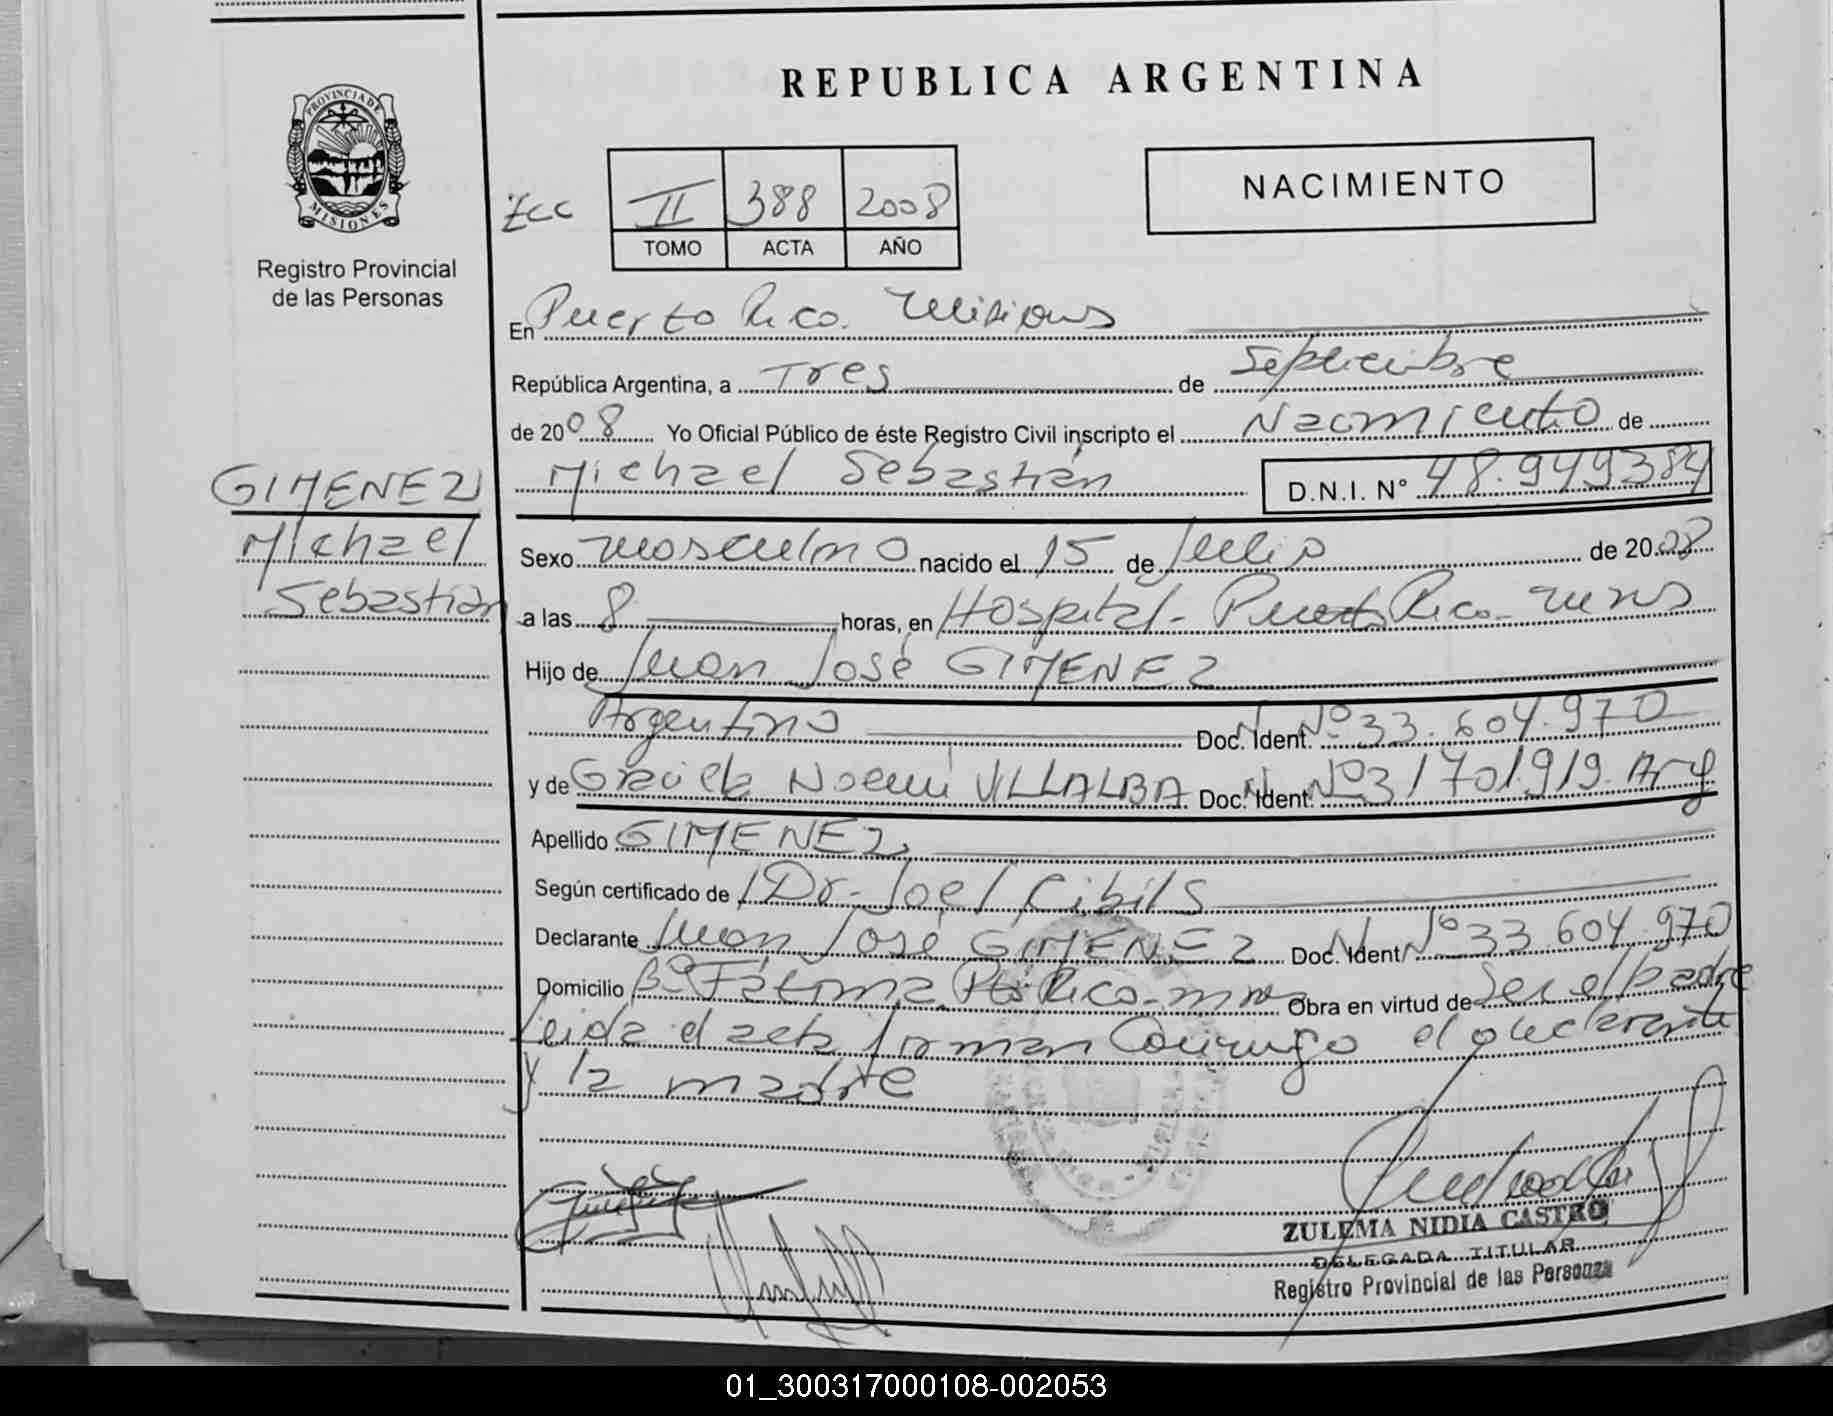 REPUBLICA ARGENTINA
PROVINCIA DE MISIONES
Registro Provincial
de las Personas
II 388 2008
TOMO ACTA AÑO
NACIMIENTO
En Puerto Rico. Misiones
República Argentina, a Tres de Septiembre
de 2008 Yo Oficial Público de éste Registro Civil inscripto el Nacimiento de
Michael Sebastián D.N.I. N° 48.949384
GIMENEZ
Michael
Sebastián
Sexo masculino nacido el 15 de Julio de 2008
a las 8 horas, en Hospital - Puerto Rico - Mnes
Hijo de Juan José GIMENEZ
Argentino Doc. Ident. N Nº 33.604.970
y de Graciela Noemí VILLALBA Doc. Ident. N Nº 31701.919. Arg
Apellido GIMENEZ
Según certificado de Dr. Joel Cibils
Declarante Juan José GIMENEZ Doc. Ident. N Nº 33.604.970
Domicilio Bº Fátima Pto Rico - mnes Obra en virtud de Ser el padre
Leida el acta firman Conmigo el declarante
y la madre
ZULEMA NIDIA CASTRO
DELEGADA TITULAR
Registro Provincial de las Personas
01_300317000108-002053